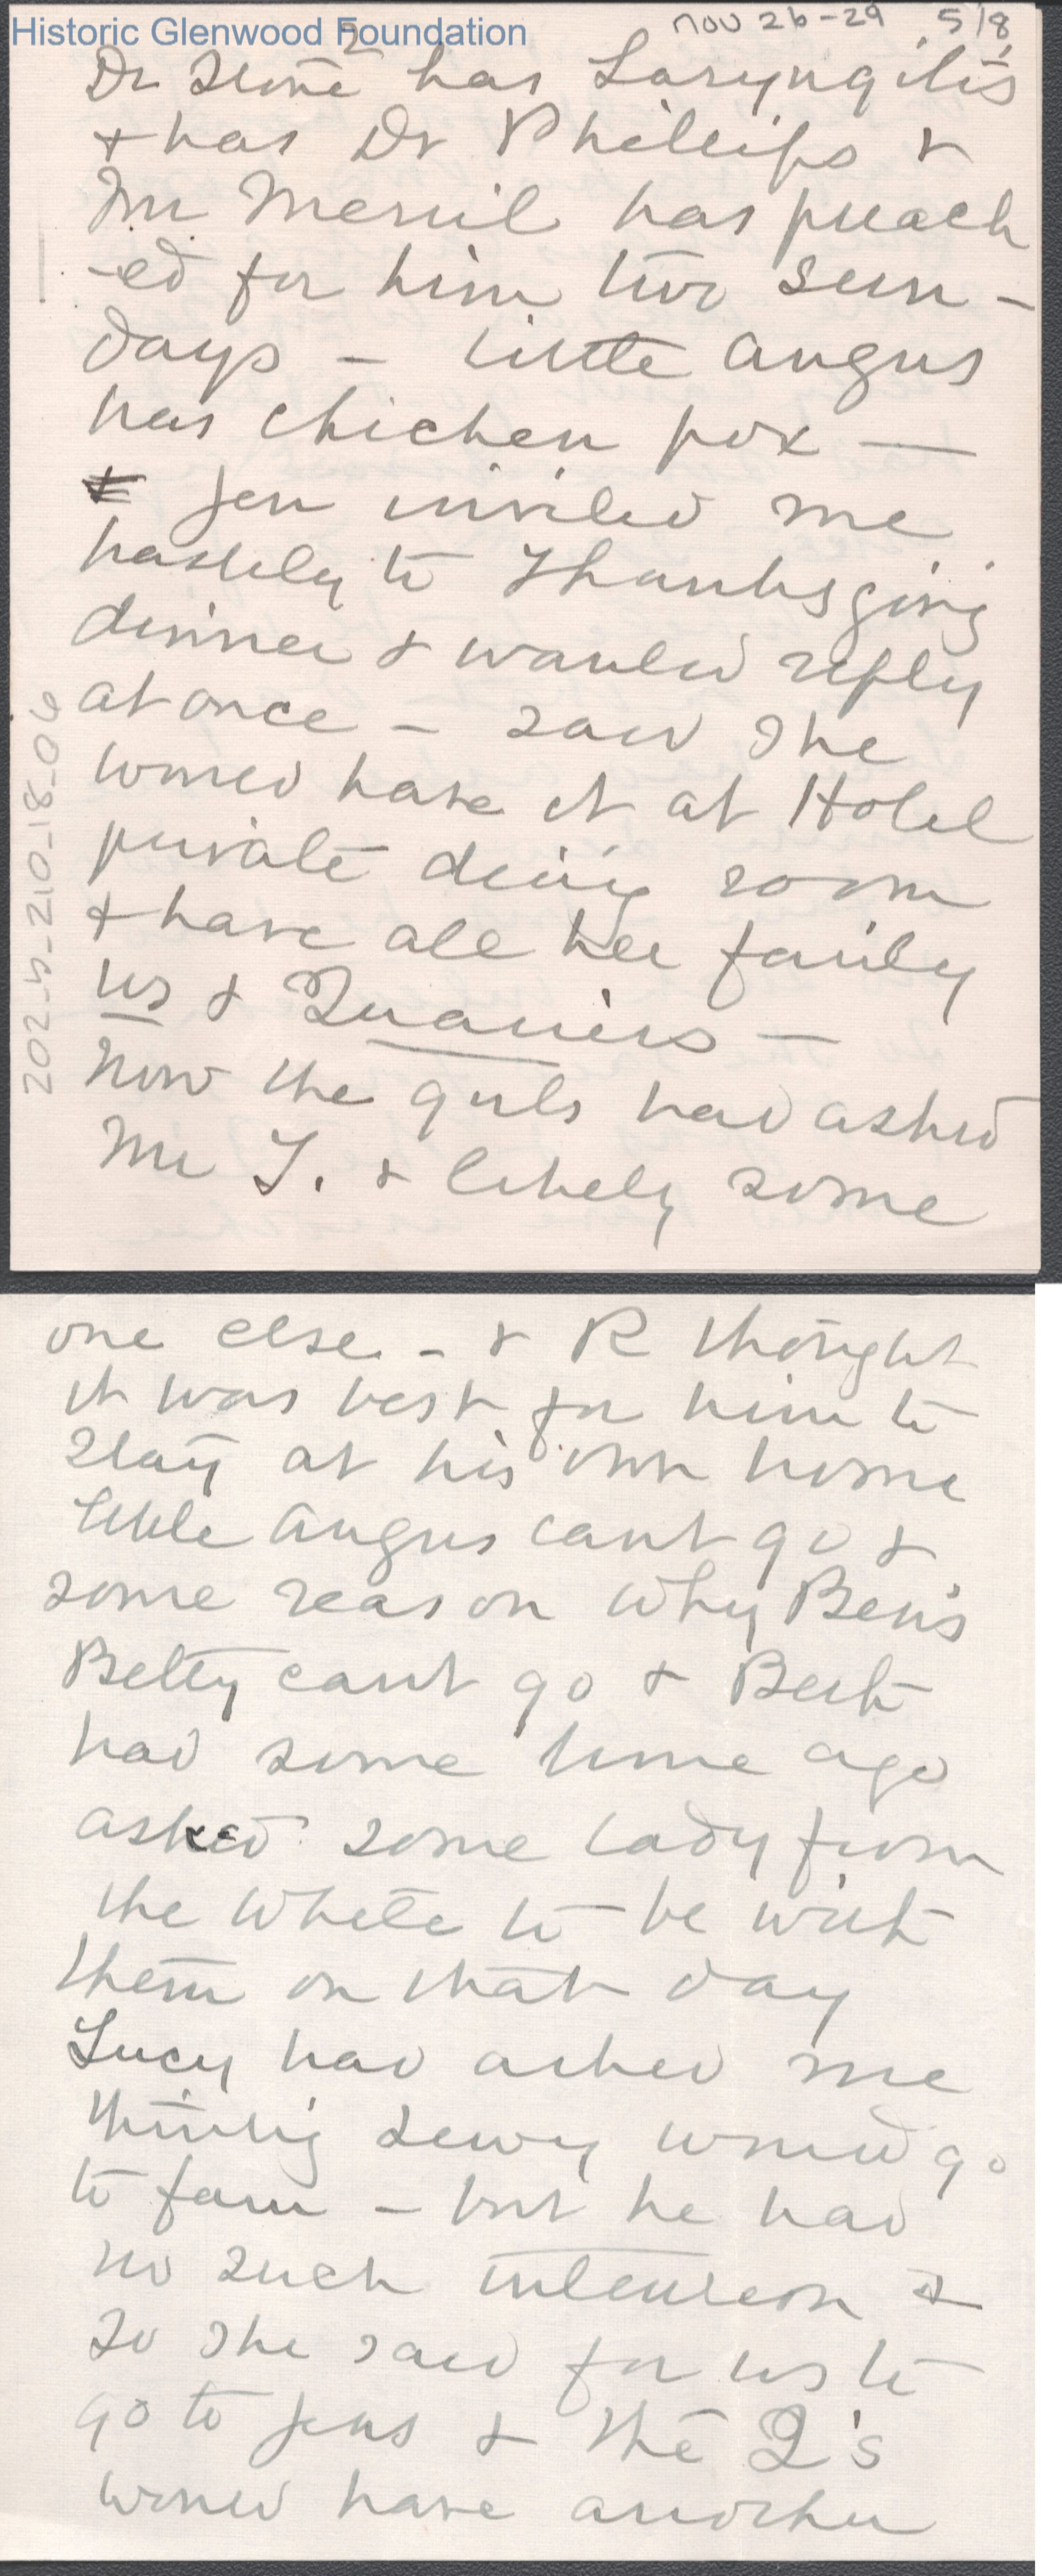 Historic Glenwood Foundation
nov 26-29 5/8
2
Dr Stone has Laryngitis
+ has Dr Phillips &
Mr. Merril has preach
-ed for him two Sun-
days - Little Angus
has chicken pox —
Jen invited me
hastily to Thanksgiving
dinner & wanted reply
at once - said she
would have it at Hotel
private dining room
+ have all her family
us & Quaniers —
Now the girls had asked
Mr T. & likely some
202_5_210_18_06
one else. - & R thought
it was best for him to
stay at his own home
little Angus cant go &
some reason why Ben's
Betty cant go & Bert
had some time ago
asked some lady from
the White to be with
them on that day
Lucy had asked me
thinking Dewy would go
to farm - but he had
no such intention &
So she said for us to
go to Jens & the Q's
would have another